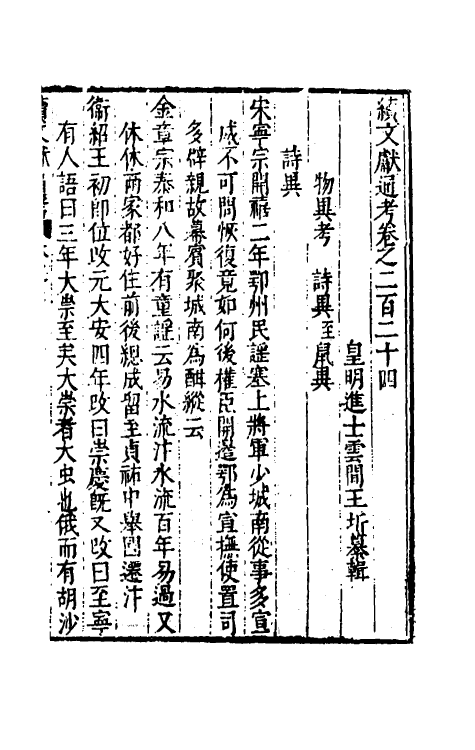 續文獻通考卷之二百二十四
皇明進士雲間王圻纂輯
物異考　詩異至鼠異
詩異
宋寧宗開禧二年鄂州民謡塞上將軍少城南從事多宣
威不可問恢復竟如何後權臣開邉鄂為宣撫使置司
多僻親故幕賓聚城南為酣縱云
金章宗泰和八年有童謡云易水流汴水流百年易過又
休休兩家都好住前後總成留至貞祐中舉國遷汴
衛紹王初即位改元大安四年改曰崇慶既又改曰至寧
有人語曰三年大崇至矣大崇者大虫也俄而有胡沙